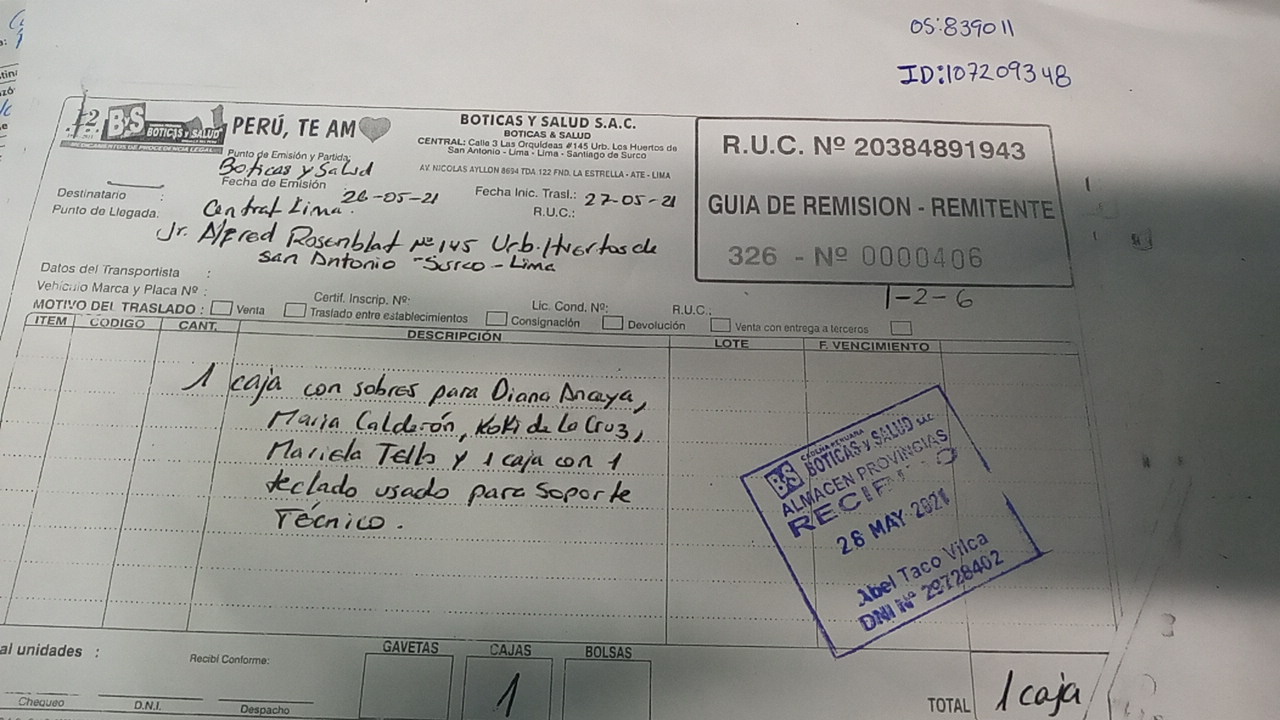 OS:839011
ID:107209348
BYS BOTICAS Y SALUD
MEDICAMENTOS DE PROCEDENCIA LEGAL
PERÚ, TE AM
BOTICAS Y SALUD S.A.C.
BOTICAS & SALUD
CENTRAL: Calle 3 Las Orquideas #145 Urb. Los Huertos de
San Antonio - Lima - Lima - Santiago de Surco
AV. NICOLAS AYLLON 8694 TDA 122 FND. LA ESTRELLA - ATE - LIMA
R.U.C. Nº 20384891943
GUIA DE REMISION - REMITENTE
326 - Nº 0000406
1-2-6
Punto de Emisión y Partida:
Boticas y Salud
Fecha de Emisión 26-05-21 Fecha Inic. Trasl.: 27-05-21
Destinatario : Central Lima. R.U.C.:
Punto de Llegada: Jr. Alfred Rosenblat Nº 145 Urb. Huertos de
san Antonio - Surco - Lima
Datos del Transportista :
Vehículo Marca y Placa Nº : Certif. Inscrip. Nº: Lic. Cond. Nº: R.U.C.:
MOTIVO DEL TRASLADO : Venta Traslado entre establecimientos Consignación Devolución Venta con entrega a terceros
ITEM CODIGO CANT. DESCRIPCIÓN LOTE F. VENCIMIENTO
1 caja con sobres para Diana Ancaya,
Maria Calderón, Koki de La Cruz,
Mariela Tello y 1 caja con 1
teclado usado para Soporte
Técnico.
BS BOTICAS Y SALUD S.A.C.
ALMACEN PROVINCIAS
26 MAY 2021
Abel Taco Vilca
DNI Nº 29728402
al unidades : Recibí Conforme: GAVETAS CAJAS BOLSAS
1
Chequeo D.N.I. Despacho TOTAL 1 caja